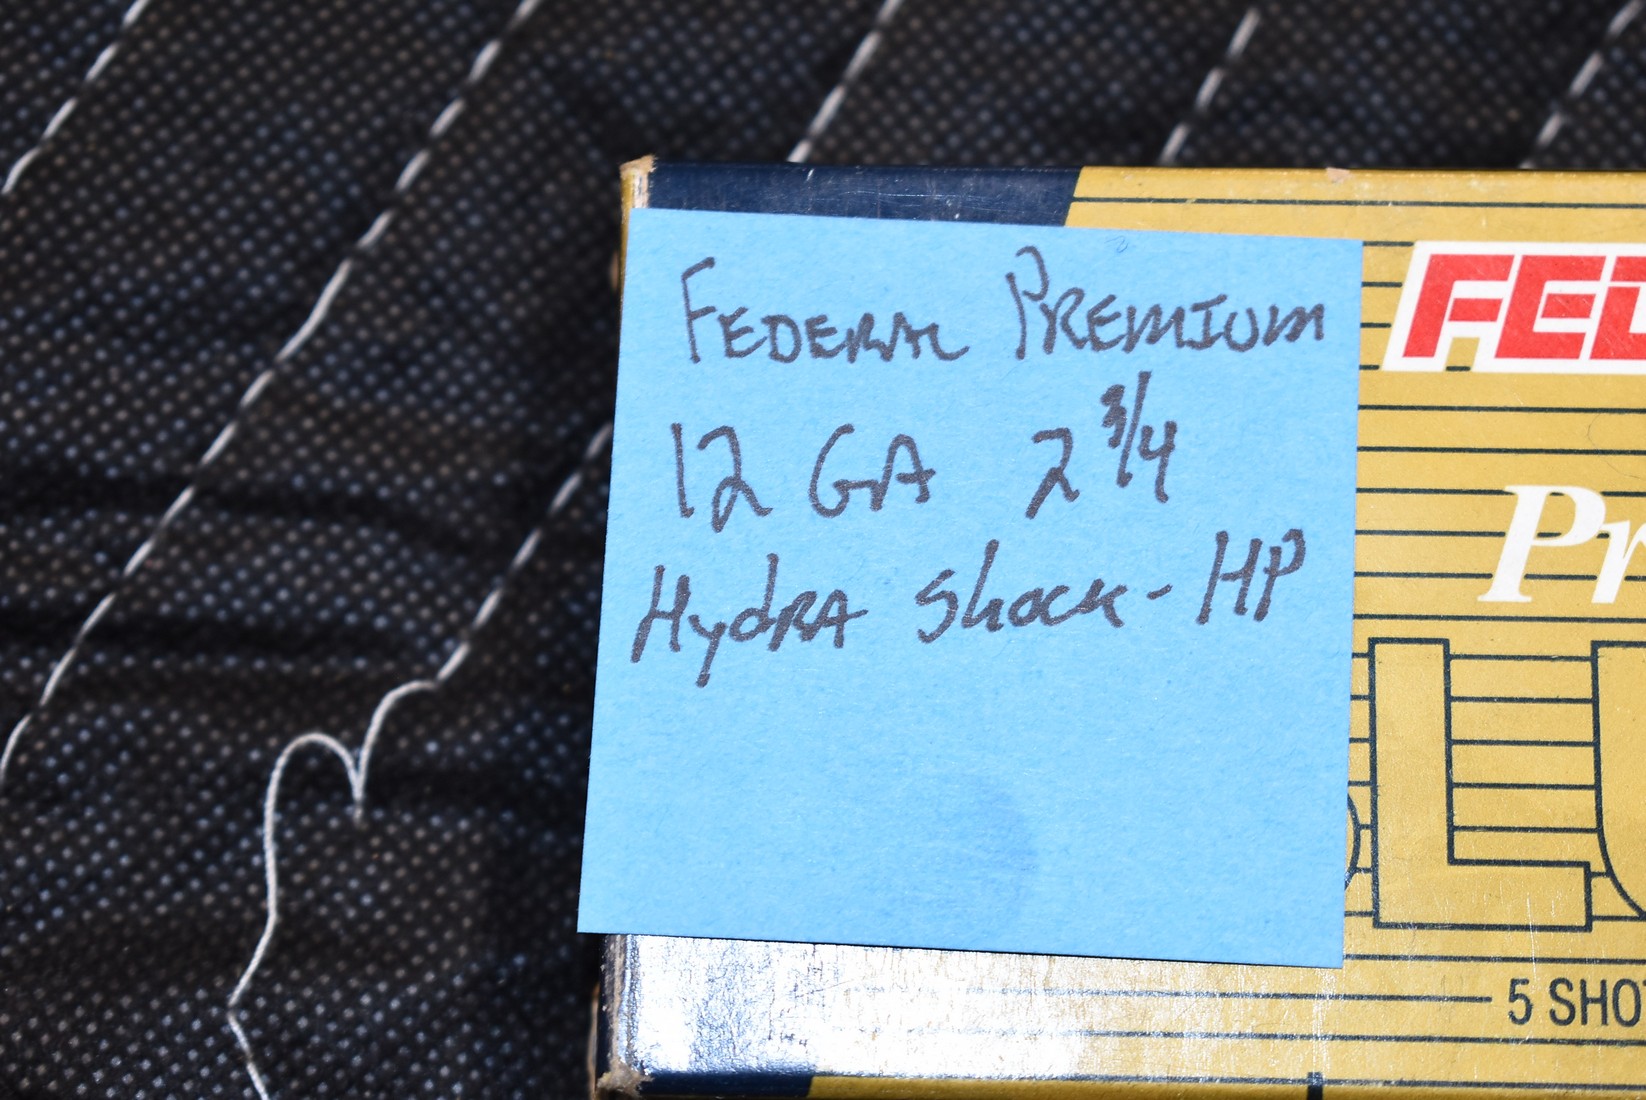 FEDERAL PREMIUM
12 GA 2 3/4
HydRA Shock - HP
5 SHO